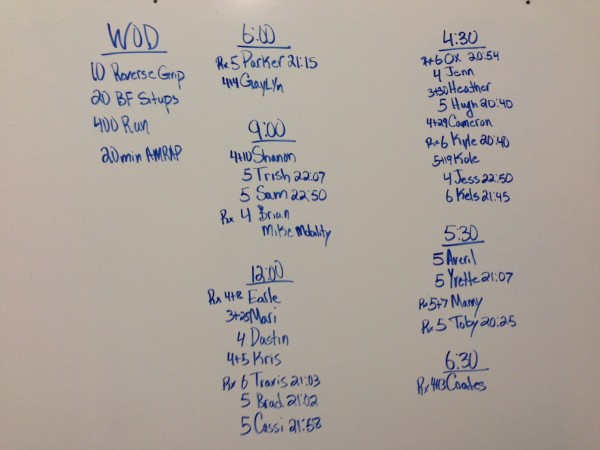 WOD
10 Reverse Grip
20 BF Situps
400 Run
20min AMRAP
6:00
Rx 5 Parker 21:15
4+4 GayLyn
9:00
4+10 Shanon
5 Trish 22:07
5 Sam 22:50
Rx 4 Brian
Mike Mobality
12:00
Rx 4+8 Earle
3+25 Mari
4 Dastin
4+5 Kris
Rx 6 Travis 21:03
5 Brad 21:02
5 Cassi 21:58
4:30
Rx+6 Ox 20:54
4 Jenn
3+30 Heather
5 Hugh 20:40
4+29 Cameron
Rx+6 Kyle 20:40
5+19 Kole
4 Jess 22:50
6 Kels 21:45
5:30
5 Averil
5 Yvette 21:07
Rx 5+7 Manny
Rx 5 Toby 20:25
6:30
Rx 4+13 Coates